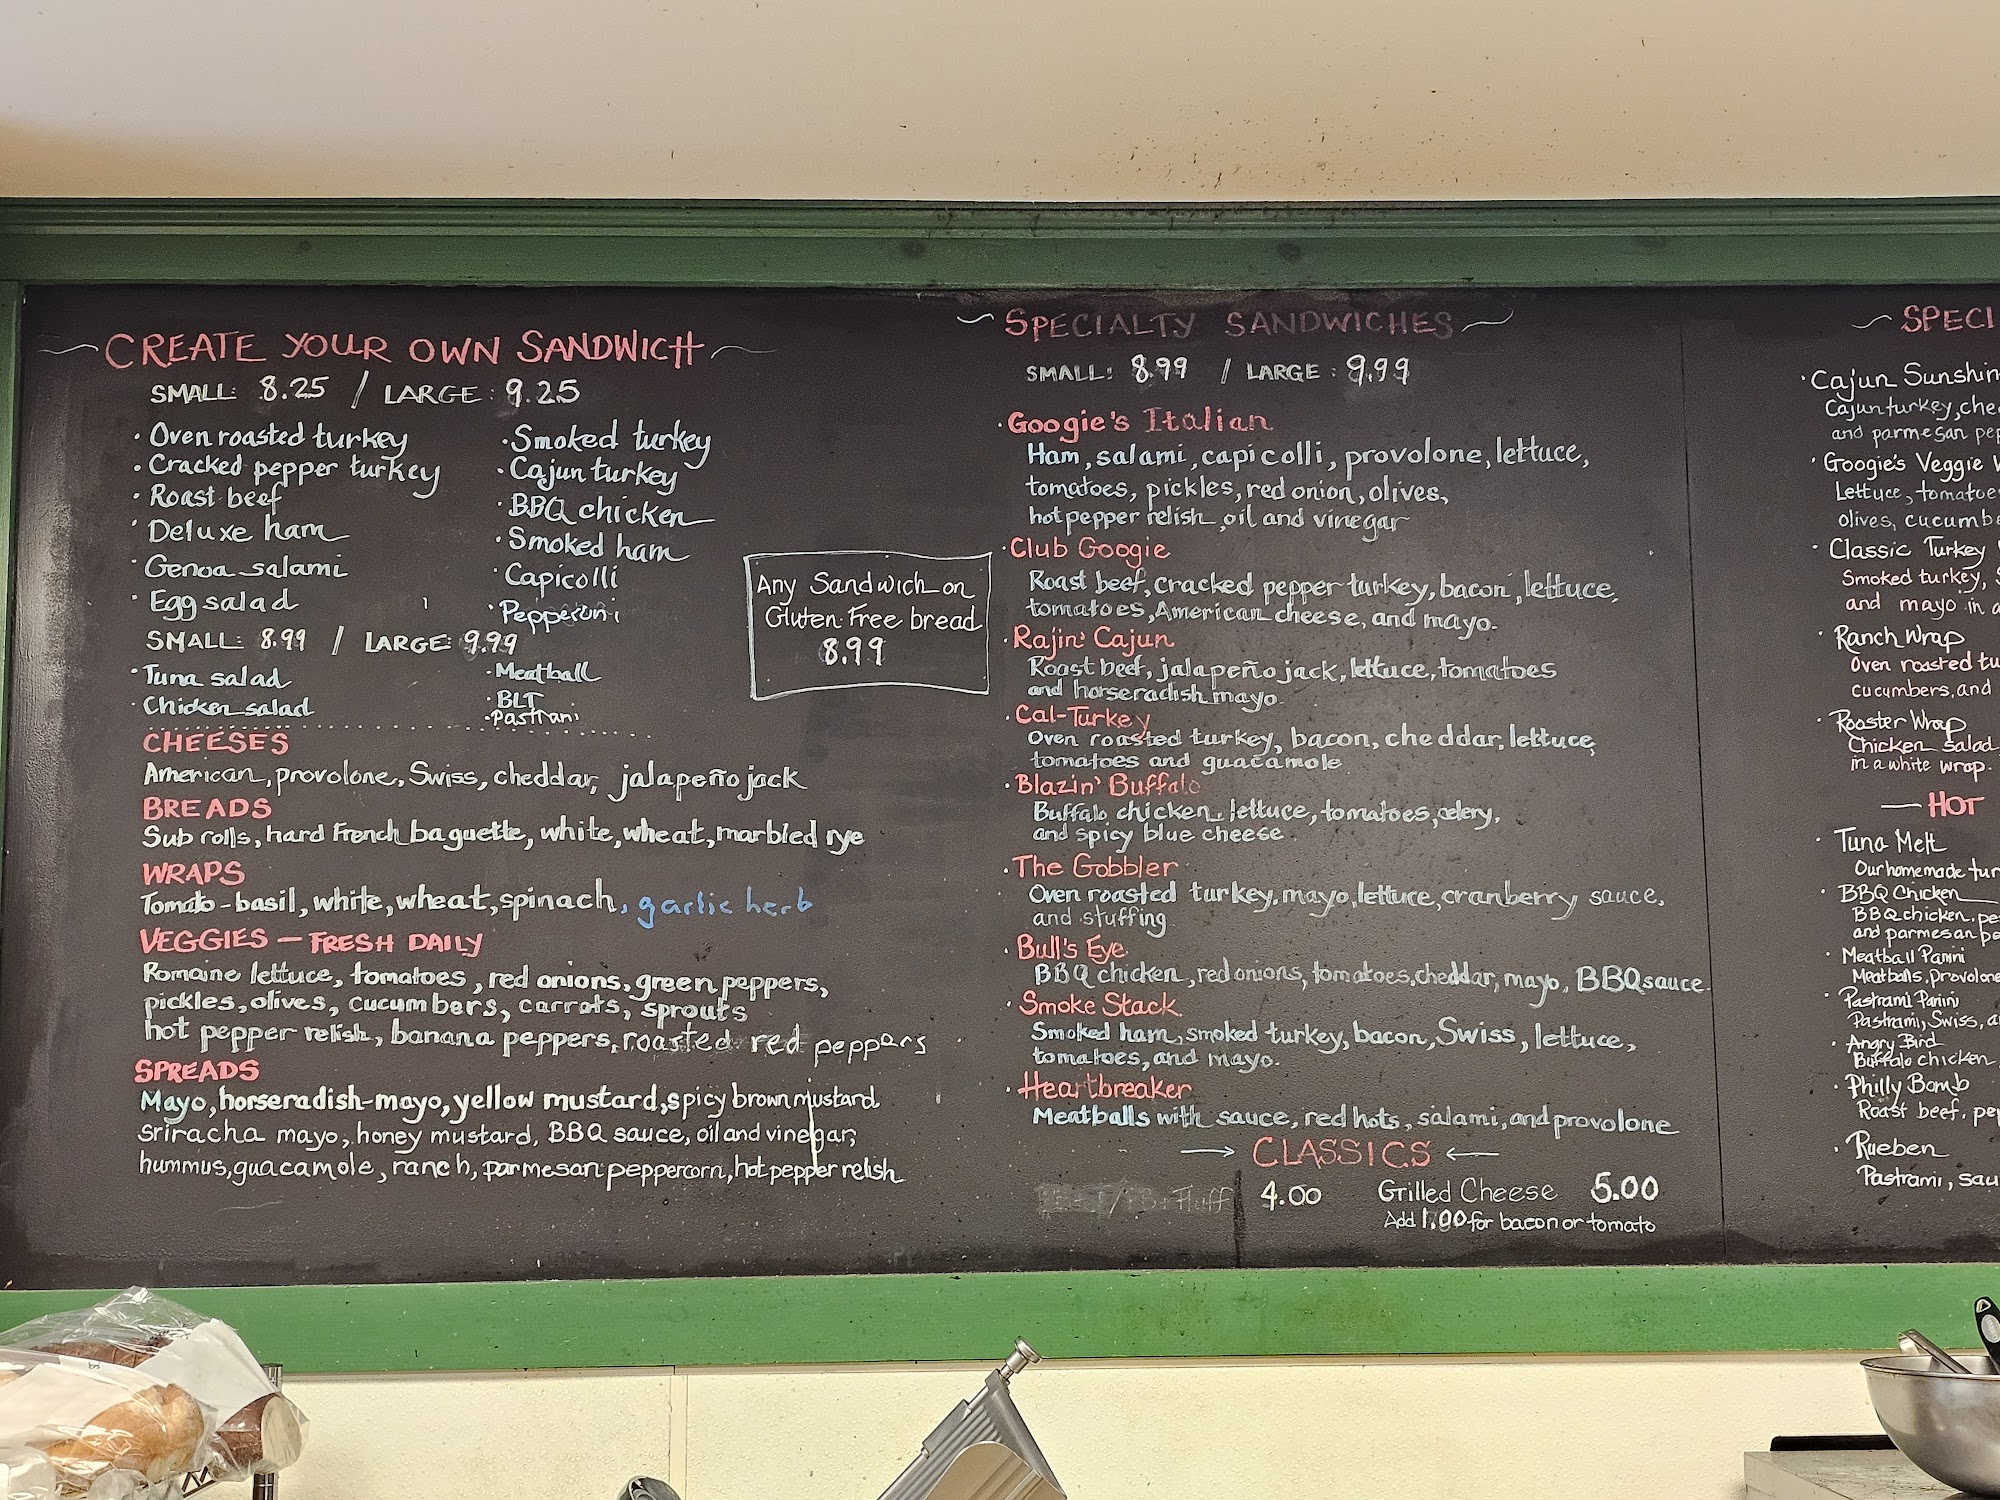 CREATE YOUR OWN SANDWICH
SMALL: 8.25 / LARGE: 9.25
· Oven roasted turkey
· Cracked pepper turkey
· Roast beef
· Deluxe ham
· Genoa salami
· Egg salad
· Smoked turkey
· Cajun turkey
· BBQ chicken
· Smoked ham
· Capicolli
· Pepperoni
SMALL: 8.99 / LARGE: 9.99
· Tuna salad
· Chicken salad
· Meatball
· BLT
· Pastrami
CHEESES
American, provolone, Swiss, cheddar, jalapeño jack
BREADS
Sub rolls, hard French baguette, white, wheat, marbled rye
WRAPS
Tomato-basil, white, wheat, spinach, garlic herb
VEGGIES - FRESH DAILY
Romaine lettuce, tomatoes, red onions, green peppers,
pickles, olives, cucumbers, carrots, sprouts
hot pepper relish, banana peppers, roasted red peppers
SPREADS
Mayo, horseradish-mayo, yellow mustard, spicy brown mustard
sriracha mayo, honey mustard, BBQ sauce, oil and vinegar,
hummus, guacamole, ranch, parmesan peppercorn, hot pepper relish
Any Sandwich on
Gluten Free bread
8.99
SPECIALTY SANDWICHES
SMALL: 8.99 / LARGE: 9.99
· Googie's Italian
Ham, salami, capicolli, provolone, lettuce,
tomatoes, pickles, red onion, olives,
hot pepper relish, oil and vinegar
· Club Googie
Roast beef, cracked pepper turkey, bacon, lettuce,
tomatoes, American cheese, and mayo.
· Rajin' Cajun
Roast beef, jalapeño jack, lettuce, tomatoes
and horseradish mayo.
· Cal-Turkey
Oven roasted turkey, bacon, cheddar, lettuce,
tomatoes and guacamole
· Blazin' Buffalo
Buffalo chicken, lettuce, tomatoes, celery,
and spicy blue cheese.
· The Gobbler
Oven roasted turkey, mayo, lettuce, cranberry sauce,
and stuffing
· Bull's Eye
BBQ chicken, red onions, tomatoes, cheddar, mayo, BBQ sauce
· Smoke Stack
Smoked ham, smoked turkey, bacon, Swiss, lettuce,
tomatoes, and mayo.
· Heartbreaker
Meatballs with sauce, red hots, salami, and provolone
CLASSICS
Fluff 4.00
Grilled Cheese 5.00
Add 1.00 for bacon or tomato
SPECI
· Cajun Sunshin
Cajun turkey, che
and parmesan pep
· Googie's Veggie W
Lettuce, tomatoes
olives, cucumbe
· Classic Turkey
Smoked turkey, S
and mayo in a
· Ranch Wrap
Oven roasted tu
cucumbers, and
· Rooster Wrap
Chicken salad
in a white wrap.
HOT
· Tuna Melt
Our homemade tun
· BBQ Chicken
BBQ chicken, pe
and parmesan pe
· Meatball Panini
Meatballs, provolone
· Pastrami Panini
Pastrami, Swiss, a
· Angry Bird
Buffalo chicken
· Philly Bomb
Roast beef, pe
· Rueben
Pastrami, sau